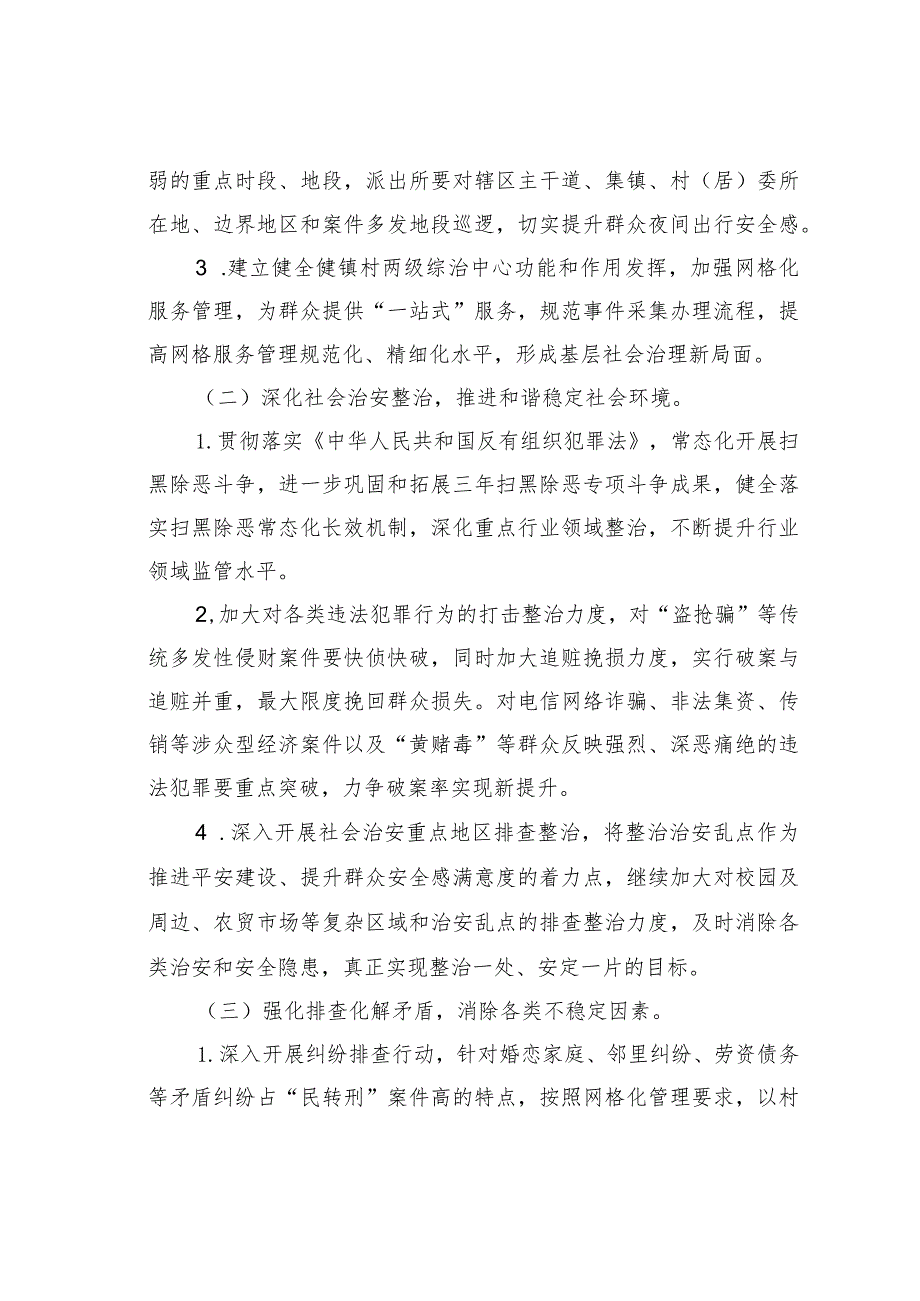 弱的重点时段、地段，派出所要对辖区主干道、集镇、村（居）委所
在地、边界地区和案件多发地段巡逻，切实提升群众夜间出行安全感。
3 .建立健全健镇村两级综治中心功能和作用发挥，加强网格化
服务管理，为群众提供“一站式”服务，规范事件采集办理流程，提
高网格服务管理规范化、精细化水平，形成基层社会治理新局面。
（二）深化社会治安整治，推进和谐稳定社会环境。
1.贯彻落实《中华人民共和国反有组织犯罪法》，常态化开展扫
黑除恶斗争，进一步巩固和拓展三年扫黑除恶专项斗争成果，健全落
实扫黑除恶常态化长效机制，深化重点行业领域整治，不断提升行业
领域监管水平。
2,加大对各类违法犯罪行为的打击整治力度，对“盗抢骗”等传
统多发性侵财案件要快侦快破，同时加大追赃挽损力度，实行破案与
追赃并重，最大限度挽回群众损失。对电信网络诈骗、非法集资、传
销等涉众型经济案件以及“黄赌毒”等群众反映强烈、深恶痛绝的违
法犯罪要重点突破，力争破案率实现新提升。
4 .深入开展社会治安重点地区排查整治，将整治治安乱点作为
推进平安建设、提升群众安全感满意度的着力点，继续加大对校园及
周边、农贸市场等复杂区域和治安乱点的排查整治力度，及时消除各
类治安和安全隐患，真正实现整治一处、安定一片的目标。
（三）强化排查化解矛盾，消除各类不稳定因素。
1.深入开展纠纷排查行动，针对婚恋家庭、邻里纠纷、劳资债务
等矛盾纠纷占“民转刑”案件高的特点，按照网格化管理要求，以村